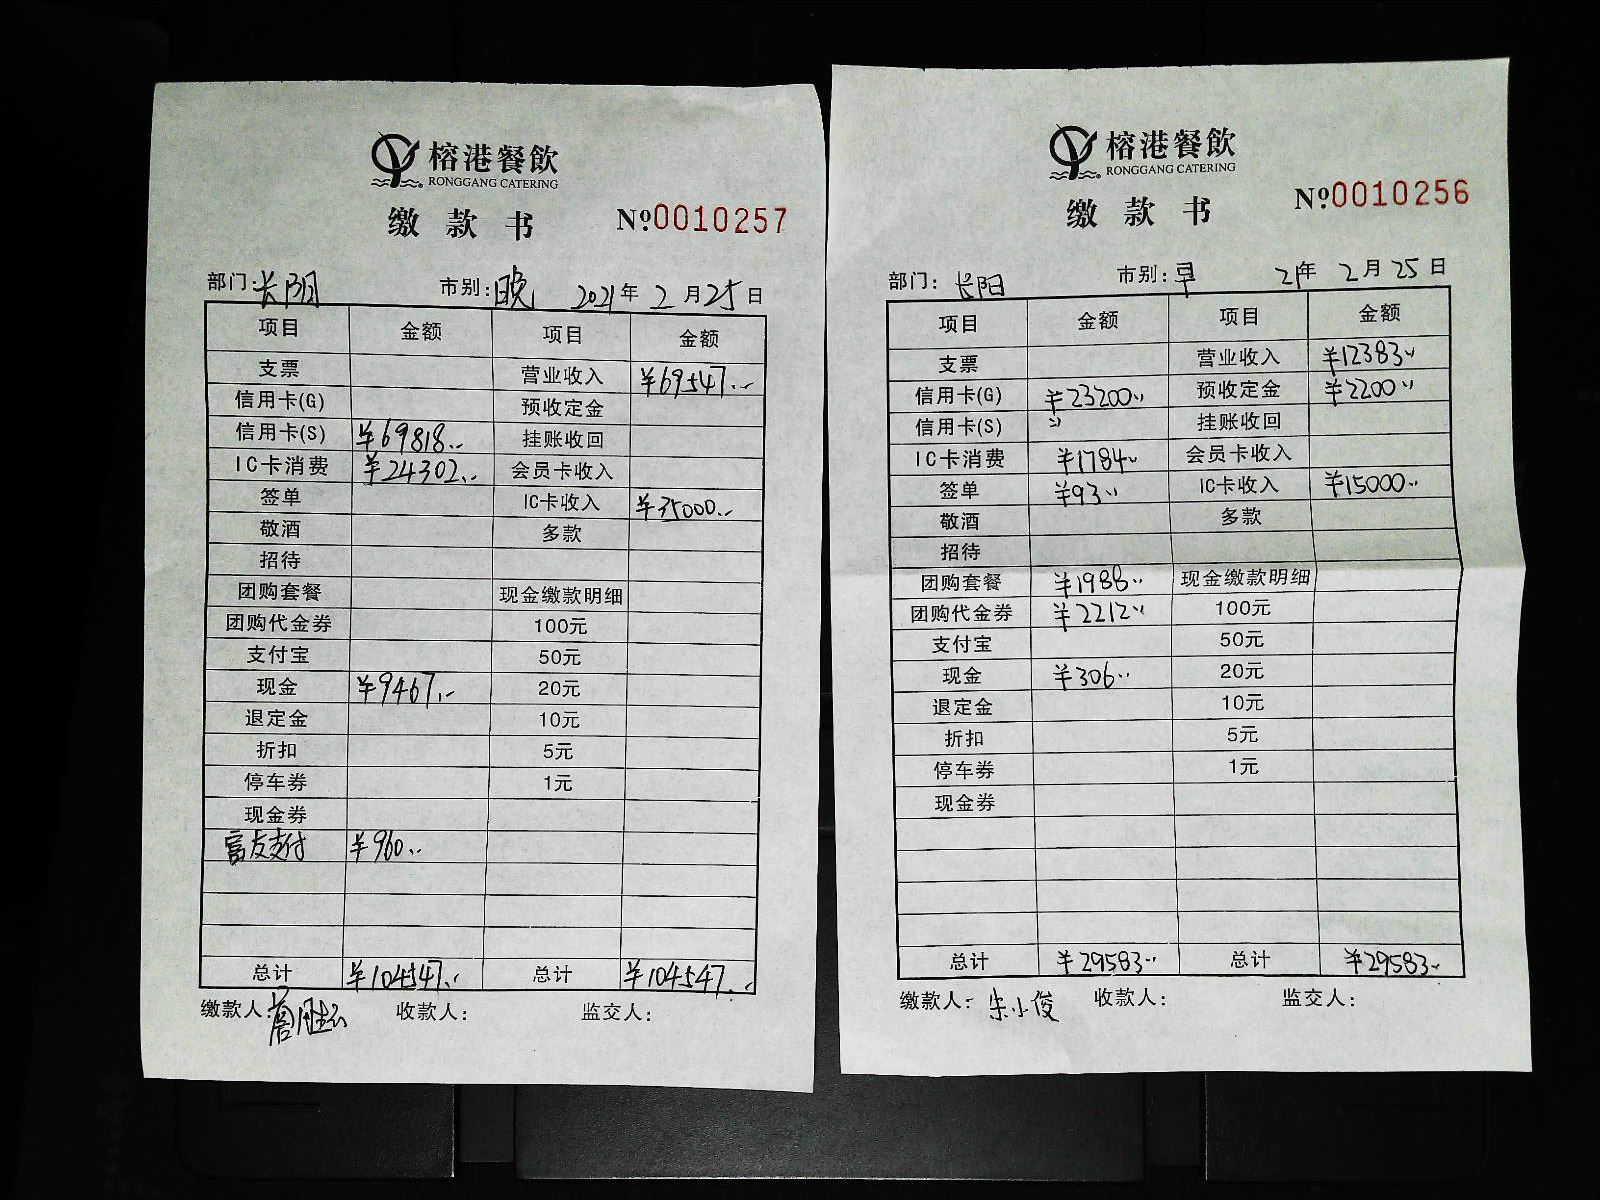 榕港餐飲
RONGGANG CATERING
缴款书 №0010257
部门:长阳 市别:晚 2021年2月25日
项目 金额 项目 金额
支票 营业收入 ¥69547.--
信用卡(G) 预收定金
信用卡(S) ¥69818.-- 挂账收回
IC卡消费 ¥24302.-- 会员卡收入
签单 IC卡收入 ¥35000.--
敬酒 多款
招待
团购套餐 现金缴款明细
团购代金券 100元
支付宝 50元
现金 ¥9467.-- 20元
退定金 10元
折扣 5元
停车券 1元
现金券
富友支付 ¥960.--
总计 ¥104547.-- 总计 ¥104547.--
缴款人: 收款人: 监交人:
榕港餐飲
RONGGANG CATERING
缴款书 №0010256
部门:长阳 市别:早 21年2月25日
项目 金额 项目 金额
支票 营业收入 ¥12383.--
信用卡(G) ¥23200.-- 预收定金 ¥2200.--
信用卡(S) 挂账收回
IC卡消费 ¥1784.-- 会员卡收入
签单 ¥93.-- IC卡收入 ¥15000.--
敬酒 多款
招待
团购套餐 ¥1988.-- 现金缴款明细
团购代金券 ¥2212.-- 100元
支付宝 50元
现金 ¥306.-- 20元
退定金 10元
折扣 5元
停车券 1元
现金券
总计 ¥29583.-- 总计 ¥29583.--
缴款人:朱小俊 收款人: 监交人: